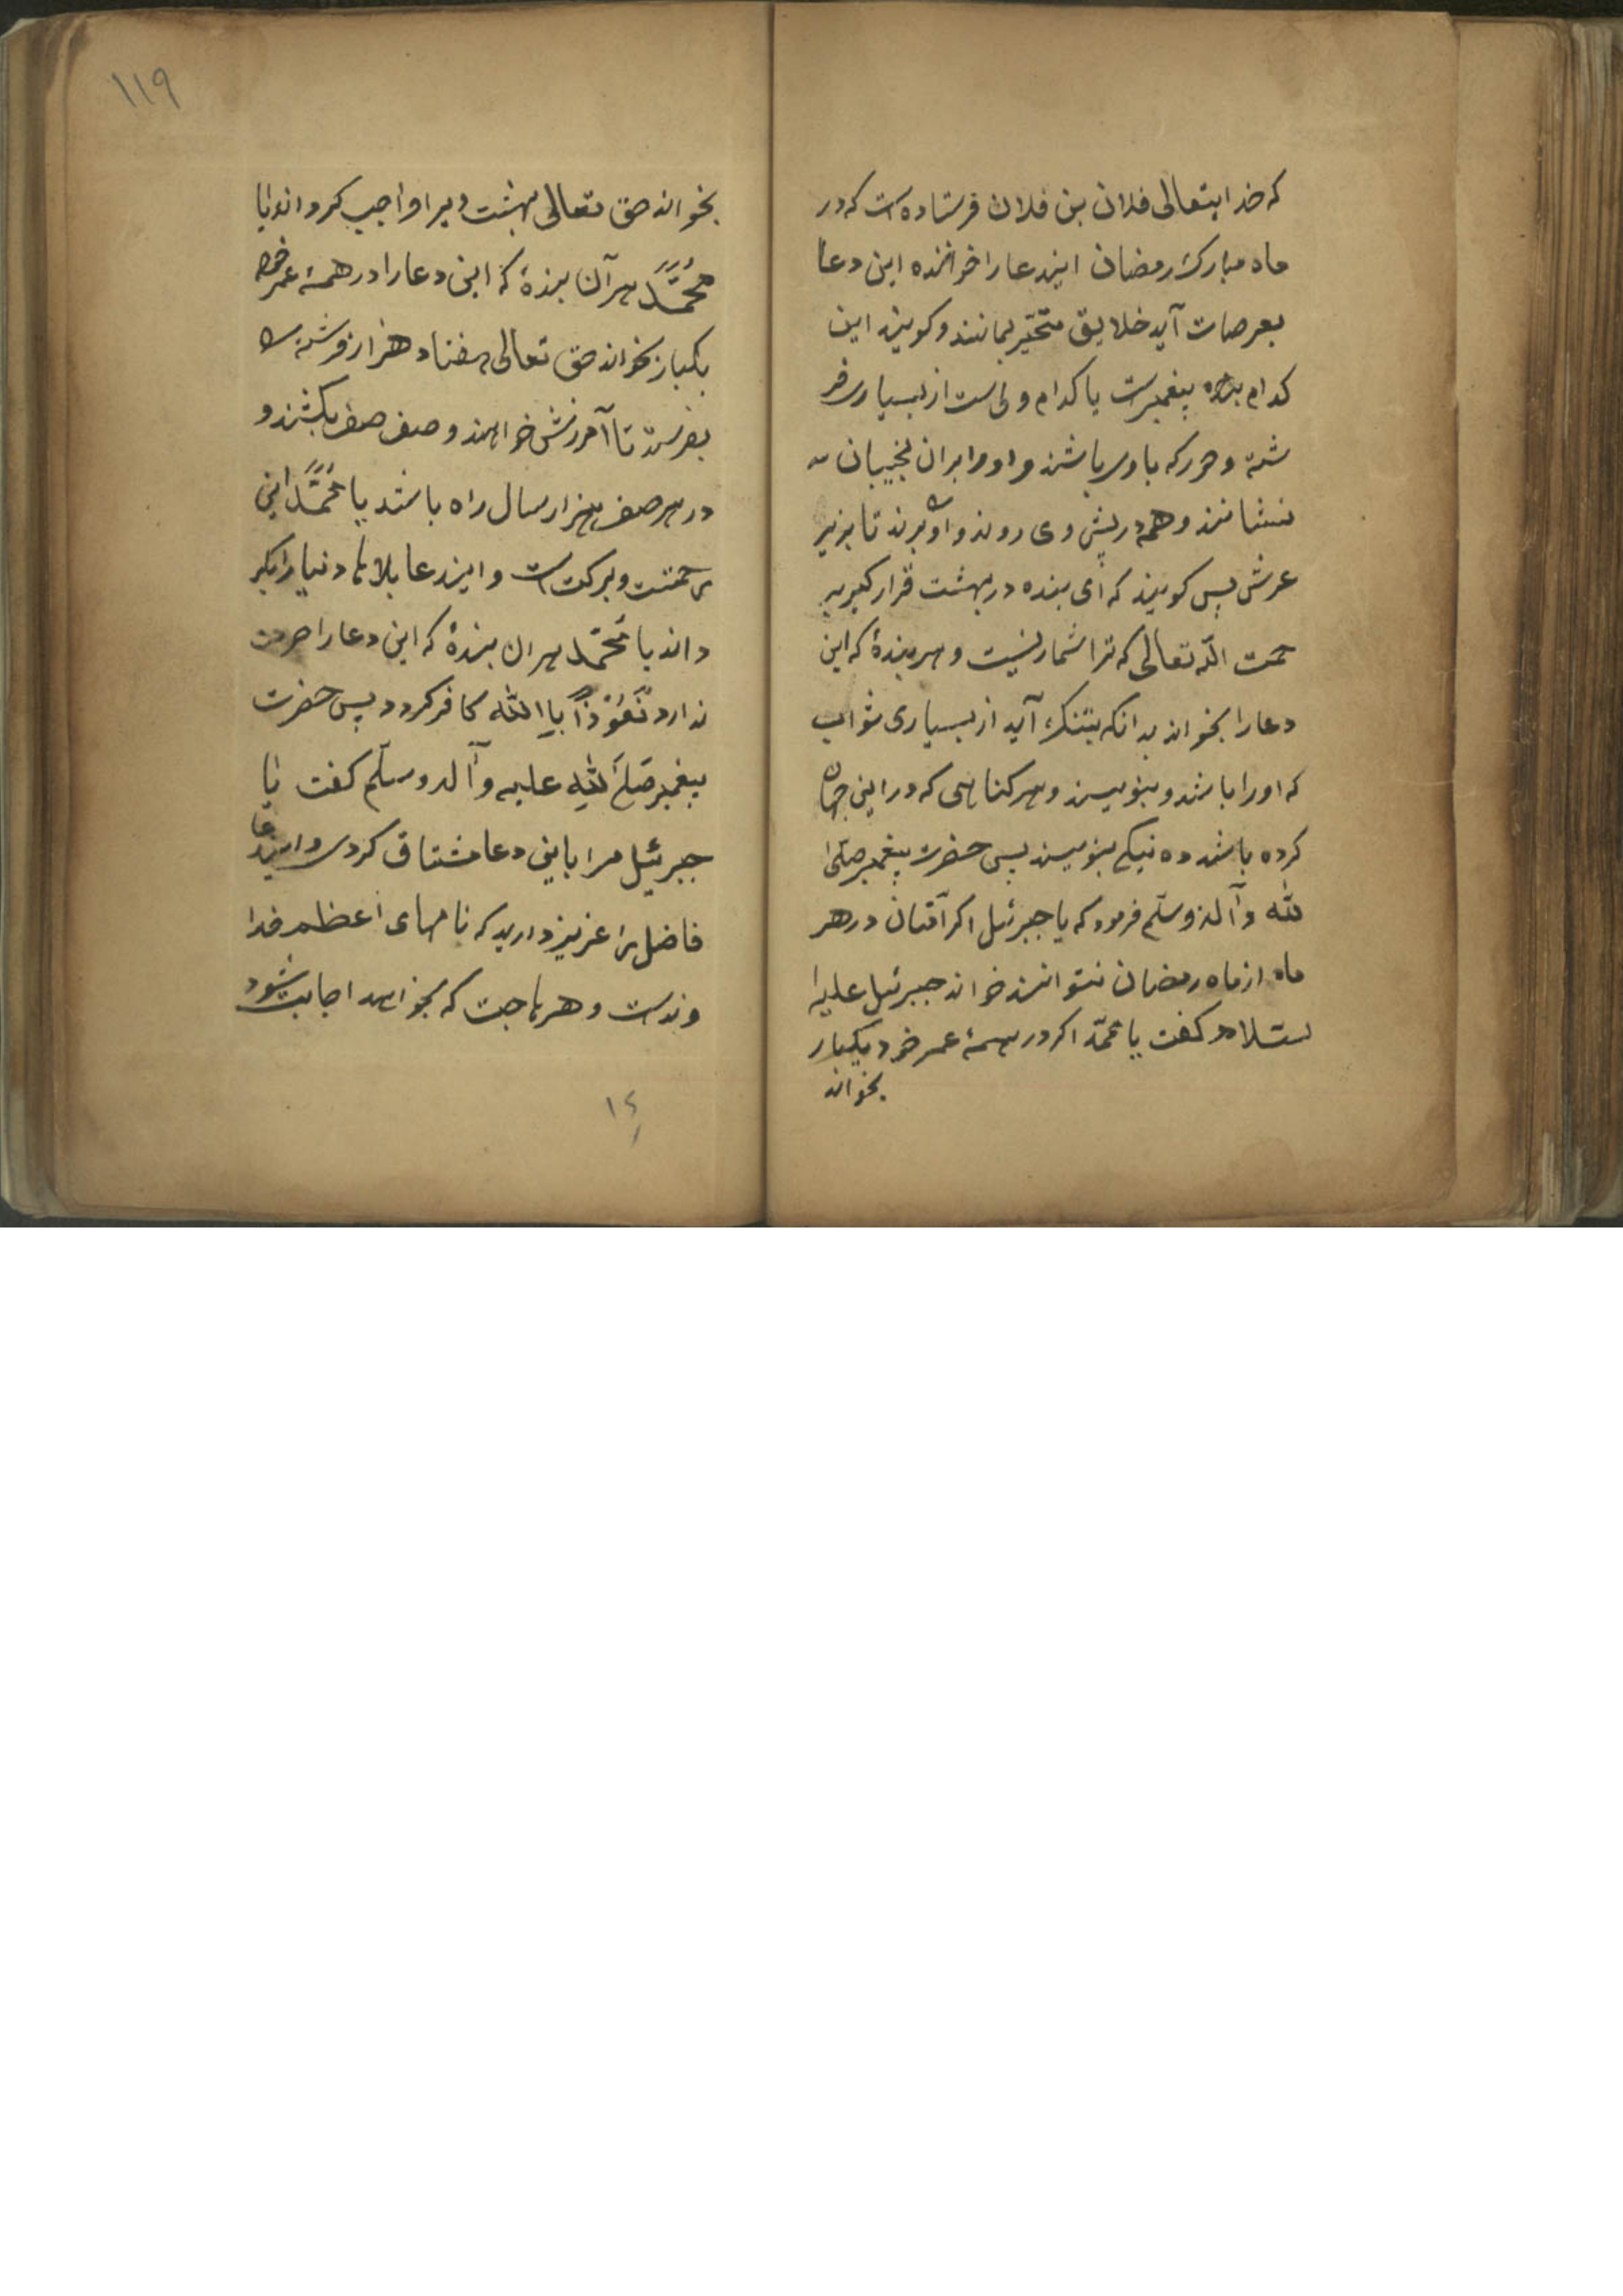 که خدایتعالی فلان بن فلان فرستاده است که در
ماه مبارک رمضان ایندعا را خواننده این دعا
بعرصات آید خلایق متحیر بمانند و کویند این
کدام بنده پیغمبرست یا کدام ولی است از بسیاری فر
شته و حور که با وی باشند و او را بر ان نجیبان
بنشانند و همه در پیش وی روند و او برند تا بزیر
عرش پس کویند که ای بنده در بهشت قرار کیر بر
حمت الله تعالی که ترا شمار نیست و هر بندهٔ که این
دعا را بخواند بدانکه بتنک آید از بسیاری ثواب
که او را باشد و بنویسند و هر کناهی که در این جهان
کرده باشد ده نیکی بنویسند پس حضرت پیغمبر صلی ا
لله وآله وسلم فرمود که یا جبرئیل اکر آفتان در هر
ماه از ماه رمضان نتوانند خواند جبرئیل علیه ا
لسلام کفت یا محمد اکر در همهٔ عمر خود یکبار
بخواند
۱۱۹
بخواند حق تعالی بهشت ویرا واجب کرداند یا
محمد هر آن بندهٔ که این دعا را در همهٔ عمر خود
یکبار بخواند حق تعالی هفتاد هزار فرشته را
بفرستد تا آمرزش خواهند و صف صف بکشند و
در هر صف هزار سال راه باشد یا محمد این
رحمتست و برکت است و ایندعا بلاها دنیا را بکر
داند یا محمد هر ان بندهٔ که این دعا را حرمت
ندارد نعوذا بالله کافر کردد پس حضرت
پیغمبر صلی الله علیه وآله وسلم کفت یا
جبرئیل مرا باین دعا مشتاق کردی و ایندعا
فاضل را عزیز دارید که نامهای اعظم خدا
وندست و هر حاجت که بخواهد اجابت شود
۱۴